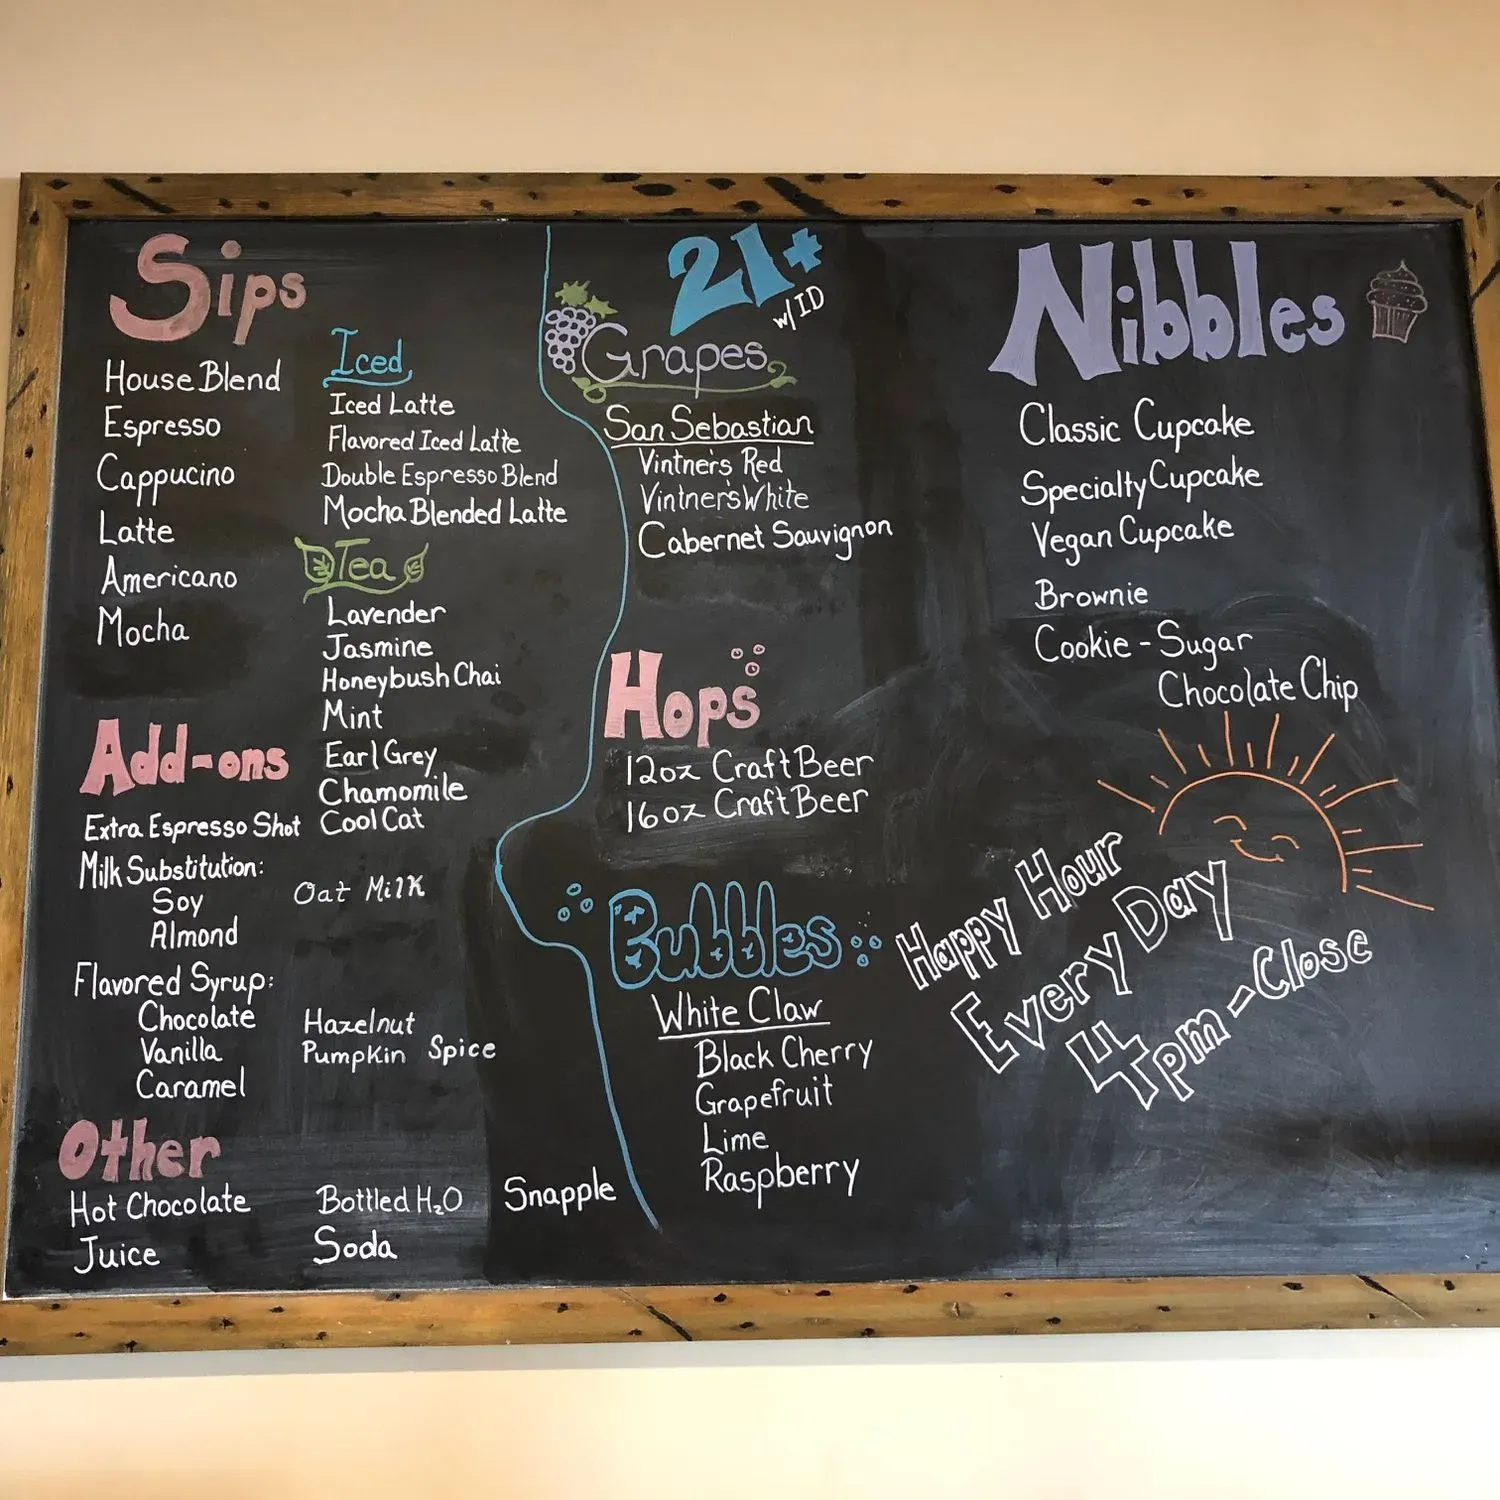 Sips
House Blend
Espresso
Cappucino
Latte
Americano
Mocha
Iced
Iced Latte
Flavored Iced Latte
Double Espresso Blend
Mocha Blended Latte
Tea
Lavender
Jasmine
Honeybush Chai
Mint
Earl Grey
Chamomile
Cool Cat
Add-ons
Extra Espresso Shot
Milk Substitution:
Soy
Oat Milk
Almond
Flavored Syrup:
Chocolate
Hazelnut
Vanilla
Pumpkin Spice
Caramel
Other
Hot Chocolate
Bottled H₂O
Snapple
Juice
Soda
21+
w/ ID
Grapes
San Sebastian
Vintner's Red
Vintner's White
Cabernet Sauvignon
Hops
12oz Craft Beer
16oz Craft Beer
Bubbles
White Claw
Black Cherry
Grapefruit
Lime
Raspberry
Nibbles
Classic Cupcake
Specialty Cupcake
Vegan Cupcake
Brownie
Cookie - Sugar
Chocolate Chip
Happy Hour
Every Day
4pm - Close